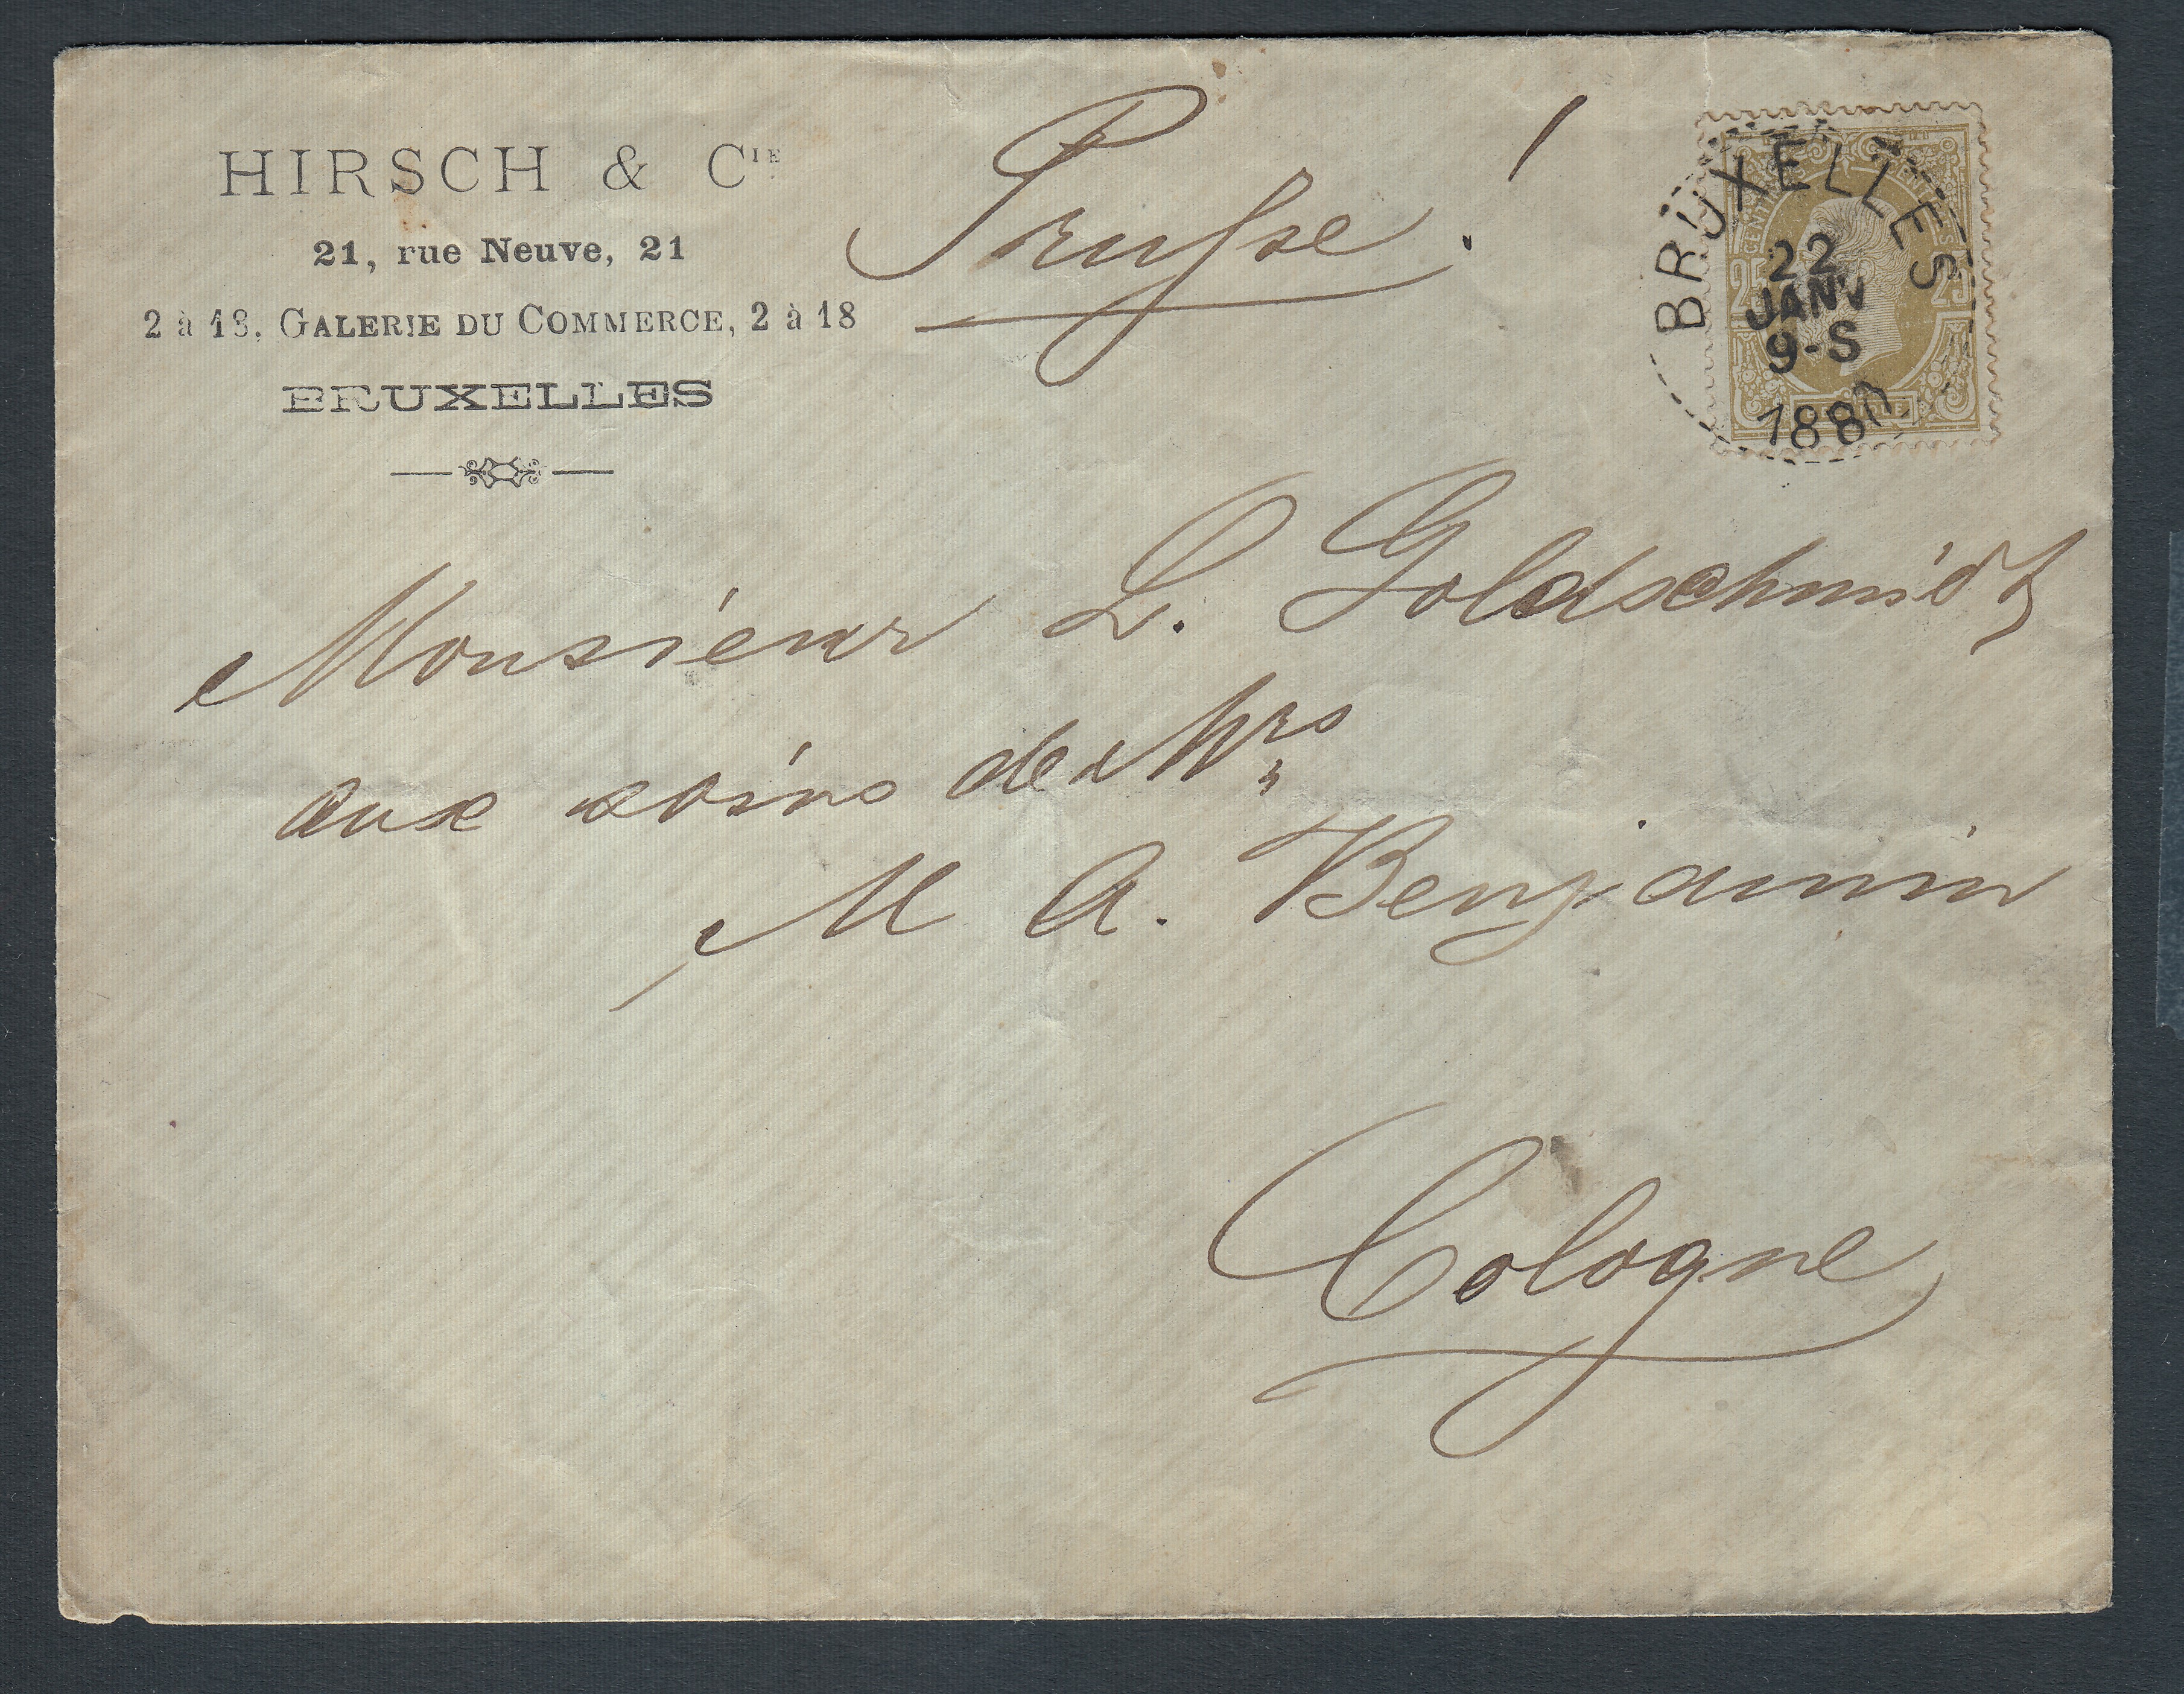 HIRSCH & CIE
21, rue Neuve, 21
2 à 18, GALERIE DU COMMERCE, 2 à 18
BRUXELLES
Prusse !
BRUXELLES
22
JANV
9-S
1880
25 25
Monsieur L. Goldschmidt
aux soins de Mrs
M A. Benjamin
Cologne